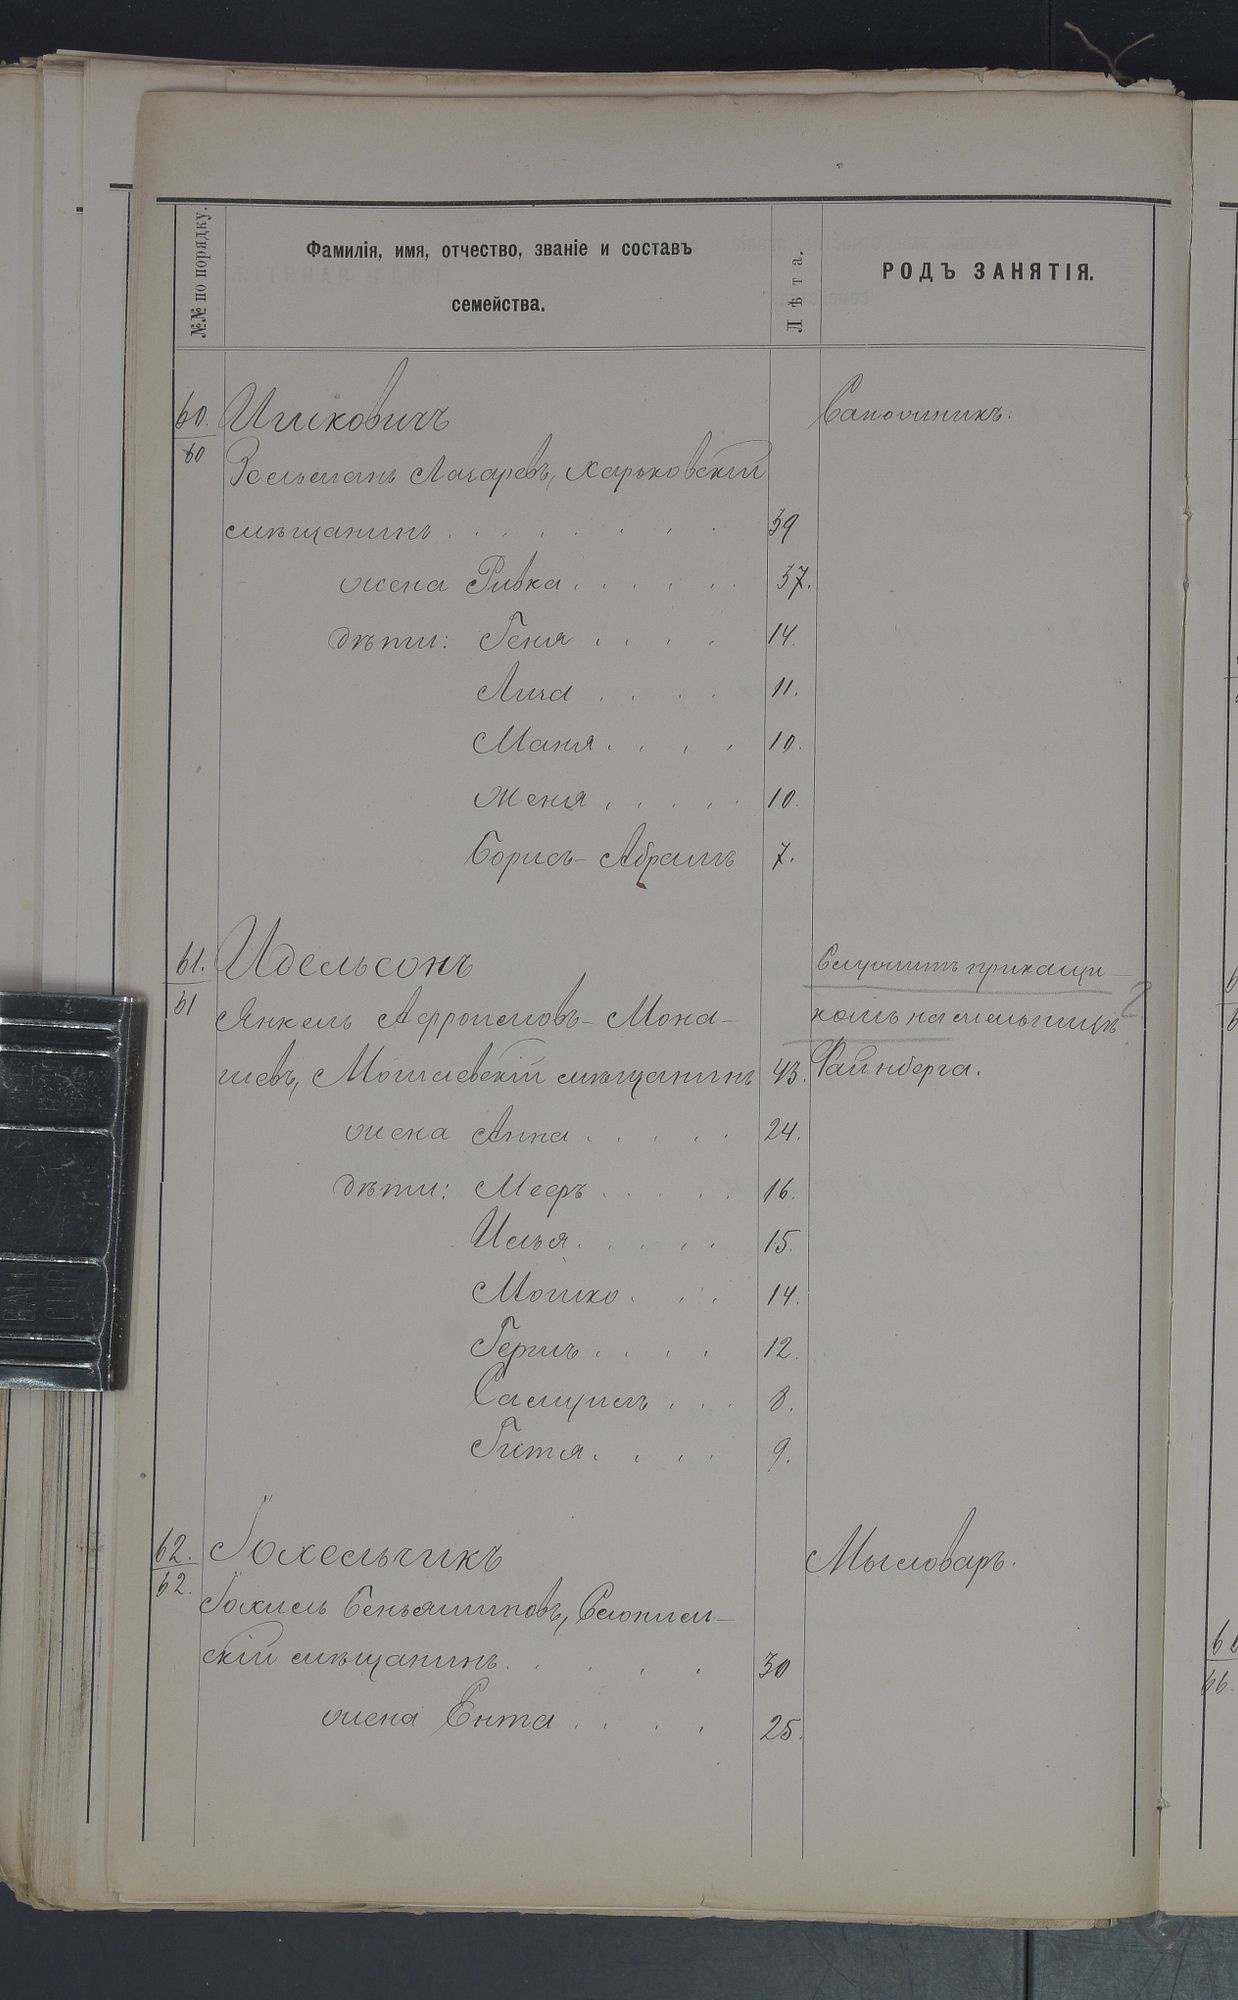 №№ по порядку.
Фамилія, имя, отчество, званіе и составъ
семейства.
Лѣта.
РОДЪ ЗАНЯТІЯ.
60. Ицковичъ Сапожникъ.
60 Зельманъ Лазаревъ, Харьковскій
мѣщанинъ . . . . . . 39
жена Ривка . . . . . 37.
дѣти: Геня . . . . 14.
Лиза . . . . 11.
Маня . . . . 10.
Женя . . . . . 10.
Борисъ-Абрамъ 7.
61. Идельсонъ Служитъ прикащи-
61 Янкель Афроимовъ-Мона- комъ на мельницѣ 2
шевъ, мѣщанинъ 43. Файнберга.
жена Анна . . . . . 24.
дѣти: Мееръ . . . . . 16.
Илья . . . . . 15.
Мошко . . . . 14.
Гершъ . . . . 12.
Самуилъ . . . 8.
Гитя . . . . 9.
62. Іохельчикъ Мыловаръ.
62. Іохиль Беньяминовъ, Слоним-
скій мѣщанинъ . . . . . 30
жена Ента . . . . 25.